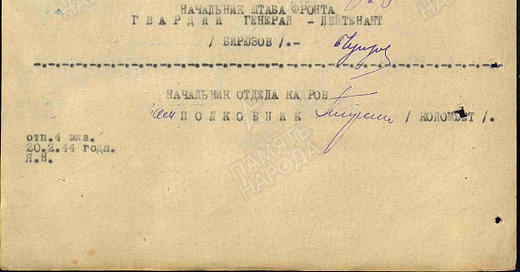 НАЧАЛЬНИК ШТАБА ФРОНТА
Г В А Р Д И И ГЕНЕРАЛ - ЛЕЙТЕНАНТ
/ БИРЮЗОВ /.-
НАЧАЛЬНИК ОТДЕЛА КАДРОВ
П О Л К О В Н И К / КОЛОМЕЕТ /.
отп.4 экз.
20.2.44 года.
Я.Н.
ПАМЯТЬ
НАРОДА